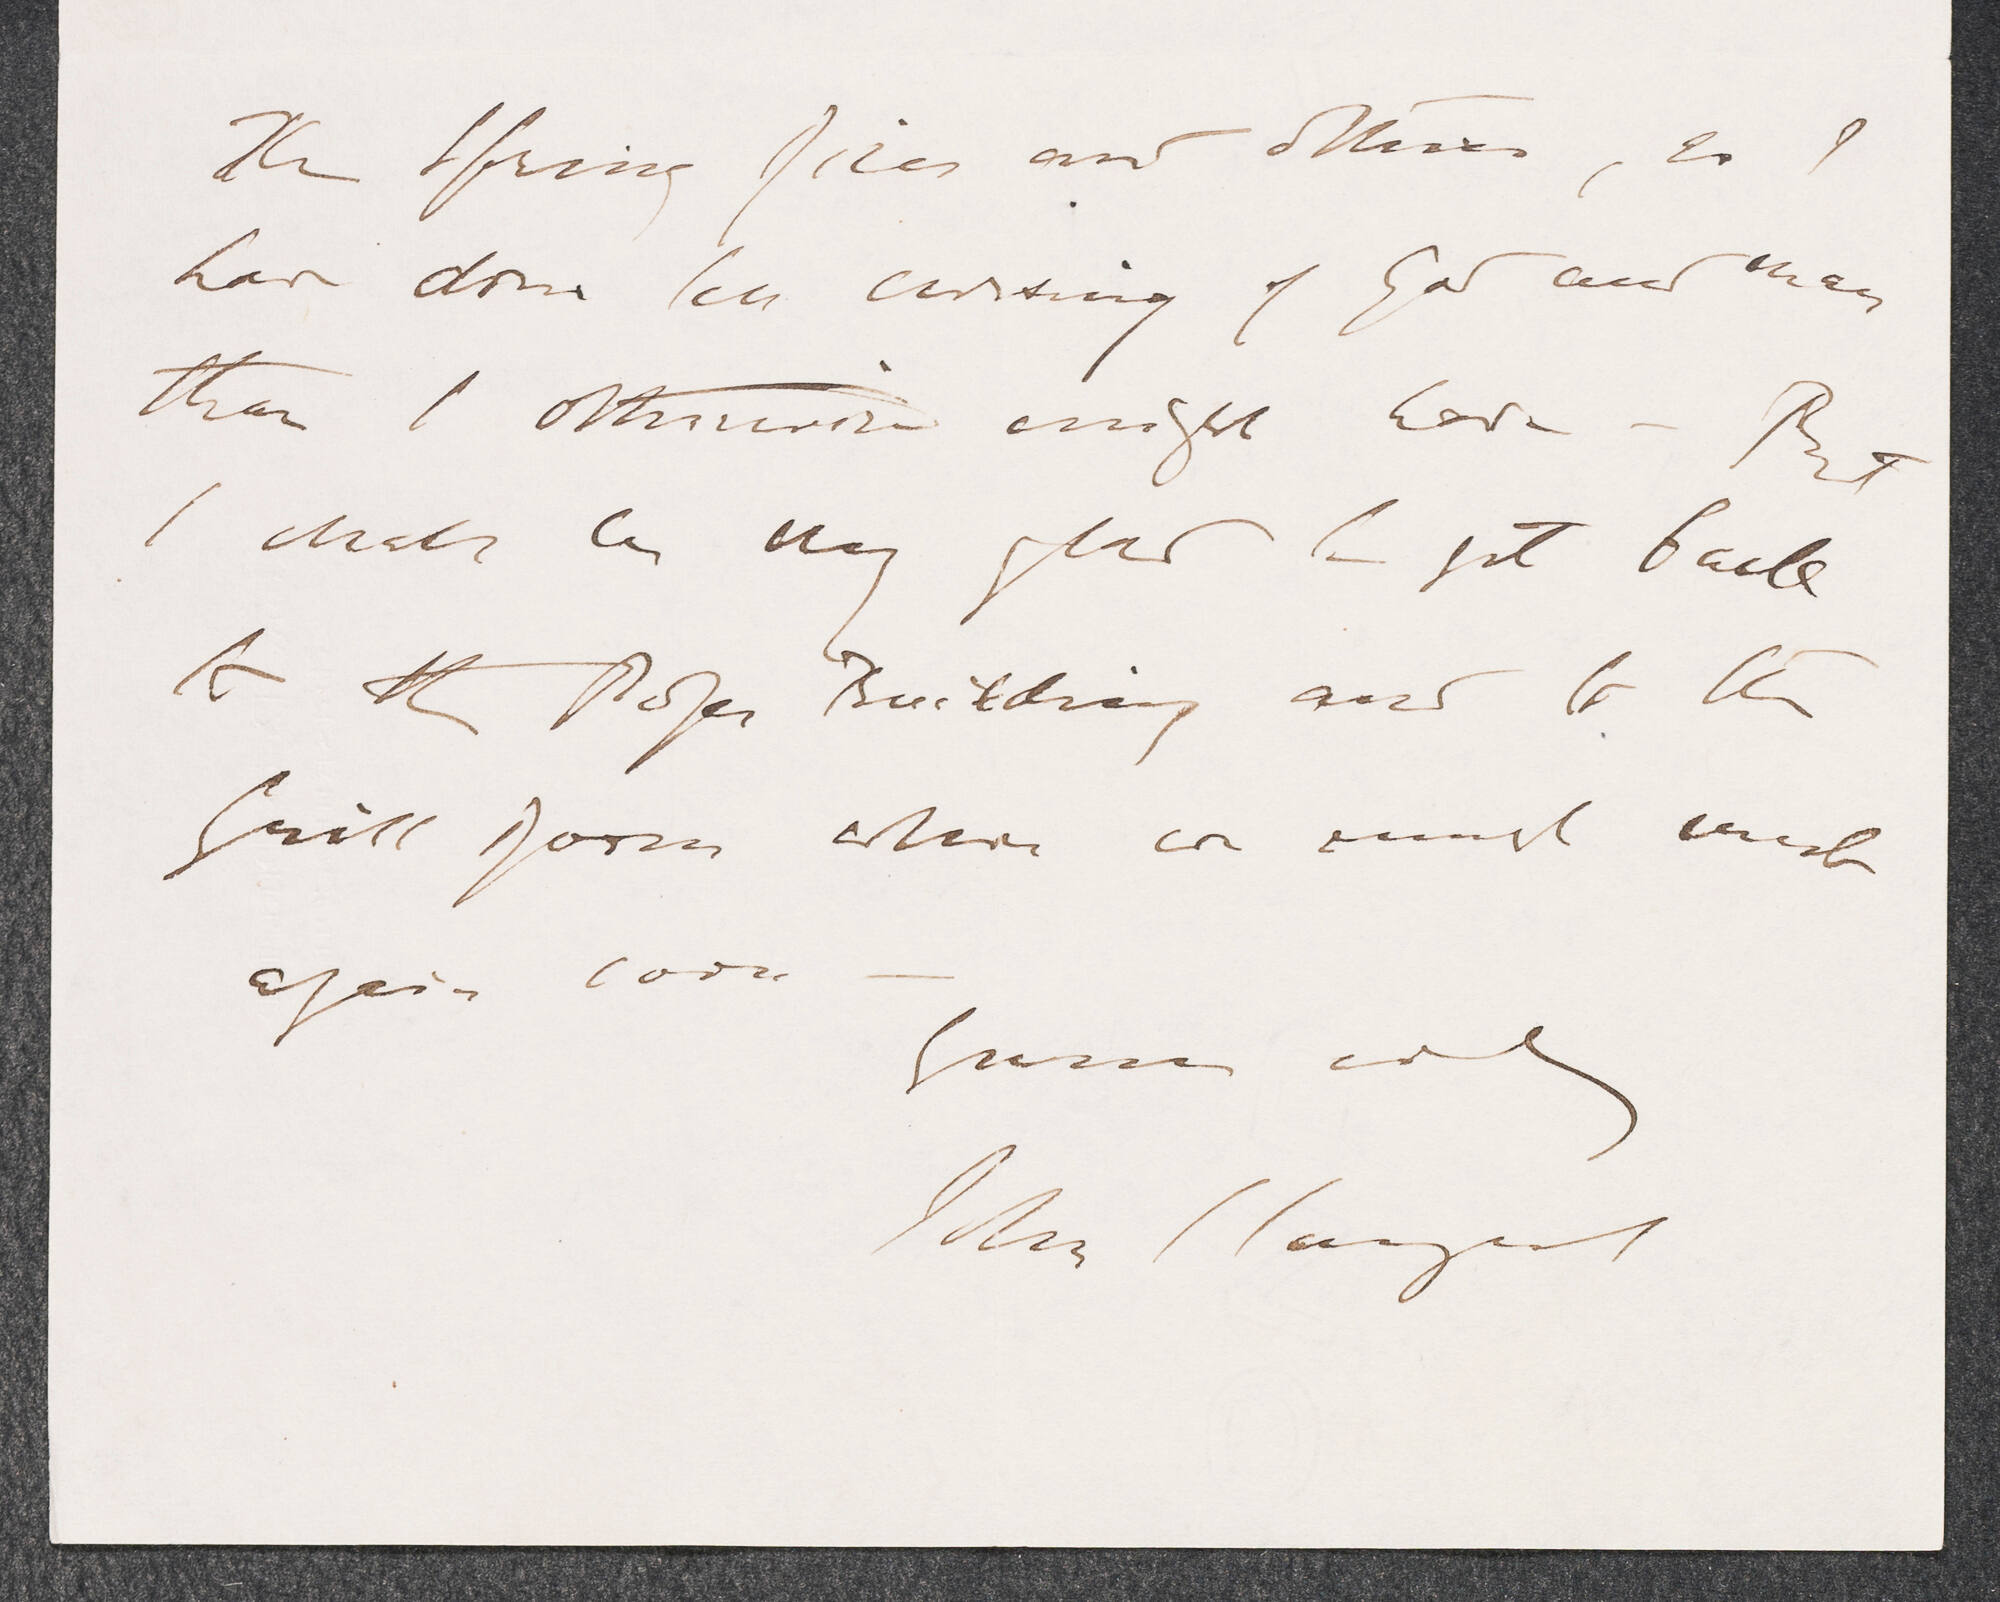 The Spring Rices and others, so I
have done less cursing of God and man
than I otherwise might have - But
I shall be very glad to get back
to the Pope Building and to the
Grill Room where we must meet
again soon —
Yours
John Sargent